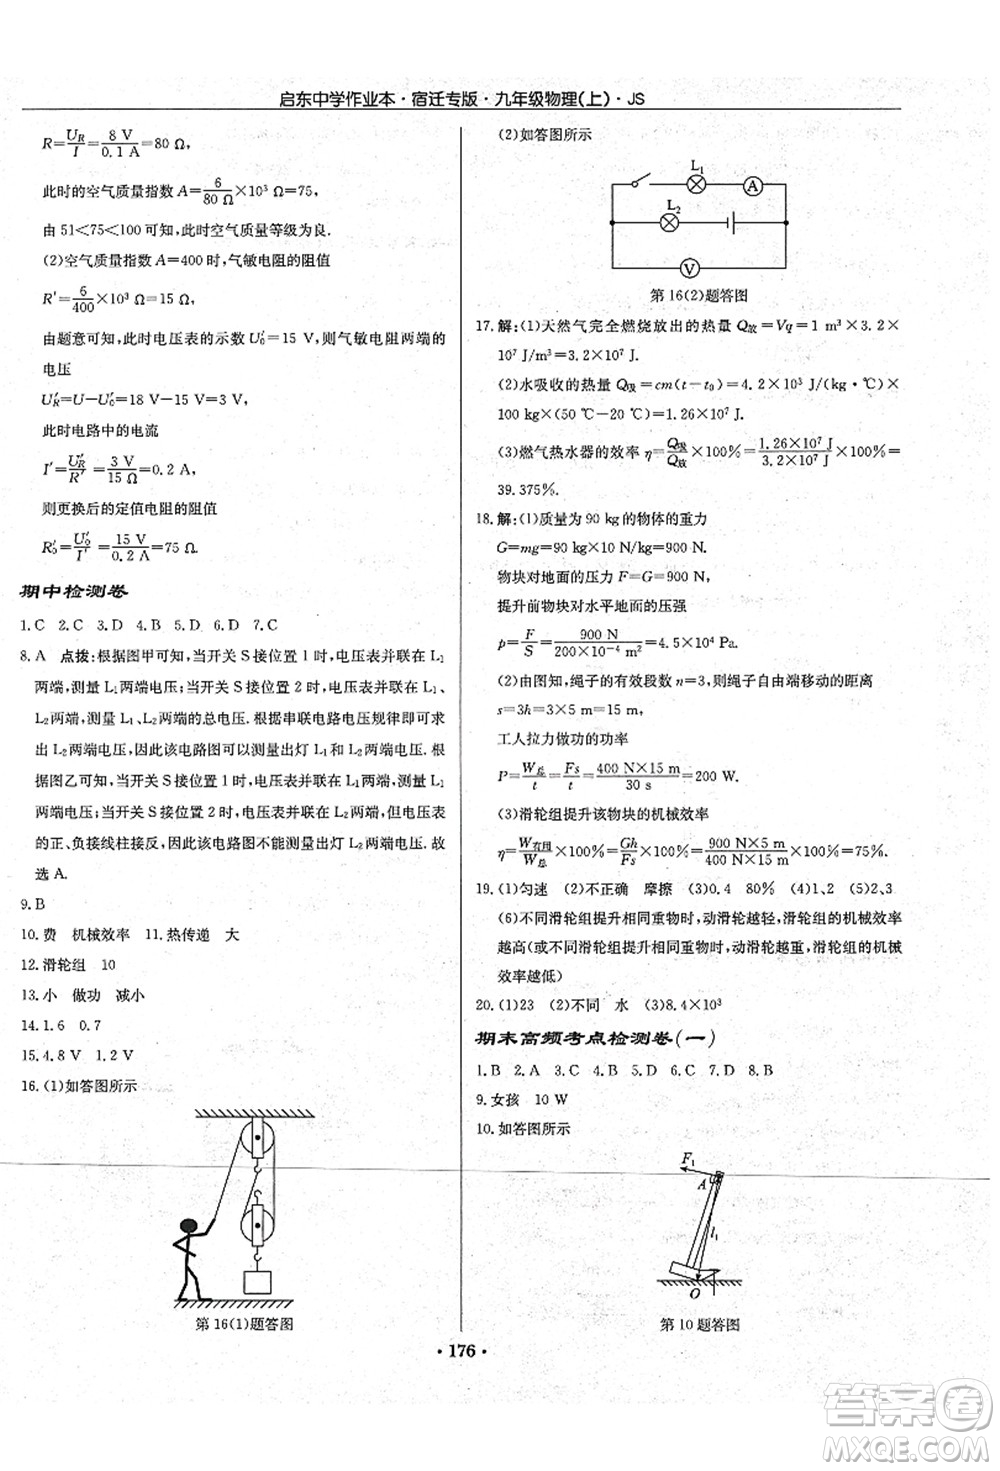 启东中学作业本·宿迁专版·九年级物理(上)·JS
R=U_R/I=8 V/0.1 A=80 Ω,
此时的空气质量指数 A=6/80 Ω×10³ Ω=75,
由 51<75<100 可知,此时空气质量等级为良.
(2)空气质量指数 A=400 时,气敏电阻的阻值
R′=6/400×10³ Ω=15 Ω,
由题意可知,此时电压表的示数 U₀′=15 V,则气敏电阻两端的
电压
U_R′=U−U₀′=18 V−15 V=3 V,
此时电路中的电流
I′=U_R′/R′=3 V/15 Ω=0.2 A,
则更换后的定值电阻的阻值
R₀′=U₀′/I′=15 V/0.2 A=75 Ω.
期中检测卷
1.C 2.C 3.D 4.B 5.D 6.D 7.C
8.A 点拨:根据图甲可知,当开关 S 接位置 1 时,电压表并联在 L₁
两端,测量 L₁两端电压;当开关 S 接位置 2 时,电压表并联在 L₁、
L₂两端,测量 L₁、L₂两端的总电压.根据串联电路电压规律即可求
出 L₂两端电压,因此该电路图可以测量出灯 L₁和 L₂两端电压.根
据图乙可知,当开关 S 接位置 1 时,电压表并联在 L₁两端,测量 L₁
两端电压;当开关 S 接位置 2 时,电压表并联在 L₂两端,但电压表
的正、负接线柱接反,因此该电路图不能测量出灯 L₂两端电压.故
选 A.
9.B
10.费 机械效率 11.热传递 大
12.滑轮组 10
13.小 做功 减小
14.1.6 0.7
15.4.8 V 1.2 V
16.(1)如答图所示
第 16(1)题答图
(2)如答图所示
L₁
A
L₂
V
第 16(2)题答图
17.解:(1)天然气完全燃烧放出的热量 Q放=Vq=1 m³×3.2×
10⁷ J/m³=3.2×10⁷ J.
(2)水吸收的热量 Q吸=cm(t−t₀)=4.2×10³ J/(kg·℃)×100
kg×(50 ℃−20 ℃)=1.26×10⁷ J.
(3)燃气热水器的效率 η=Q吸/Q放×100%=1.26×10⁷ J/3.2×10⁷ J×100%=
39.375%.
18.解:(1)质量为 90 kg 的物体的重力
G=mg=90 kg×10 N/kg=900 N.
物块对地面的压力 F=G=900 N,
提升前物块对水平地面的压强
p=F/S=900 N/200×10⁻⁴ m²=4.5×10⁴ Pa.
(2)由图知,绳子的有效段数 n=3,则绳子自由端移动的距离
s=3h=3×5 m=15 m,
工人拉力做功的功率
P=W总/t=Fs/t=400 N×15 m/30 s=200 W.
(3)滑轮组提升该物块的机械效率
η=W有用/W总×100%=Gh/Fs×100%=900 N×5 m/400 N×15 m×100%=75%.
19.(1)匀速 (2)不正确 摩擦 (3)0.4 (4)80% (5)1、2 1、3
(6)不同滑轮组提升相同重物时,动滑轮越轻,滑轮组的机械效率
越高(或不同滑轮组提升相同重物时,动滑轮越重,滑轮组的机械
效率越低)
20.(1)23 (2)不同 水 (3)8.4×10³
期末高频考点检测卷(一)
1.B 2.A 3.C 4.B 5.C 6.C 7.D 8.B
9.女孩 10 W
10.如答图所示
F₁
A
l₁
O
第 10 题答图
·176·
答案圈
MXQE.COM